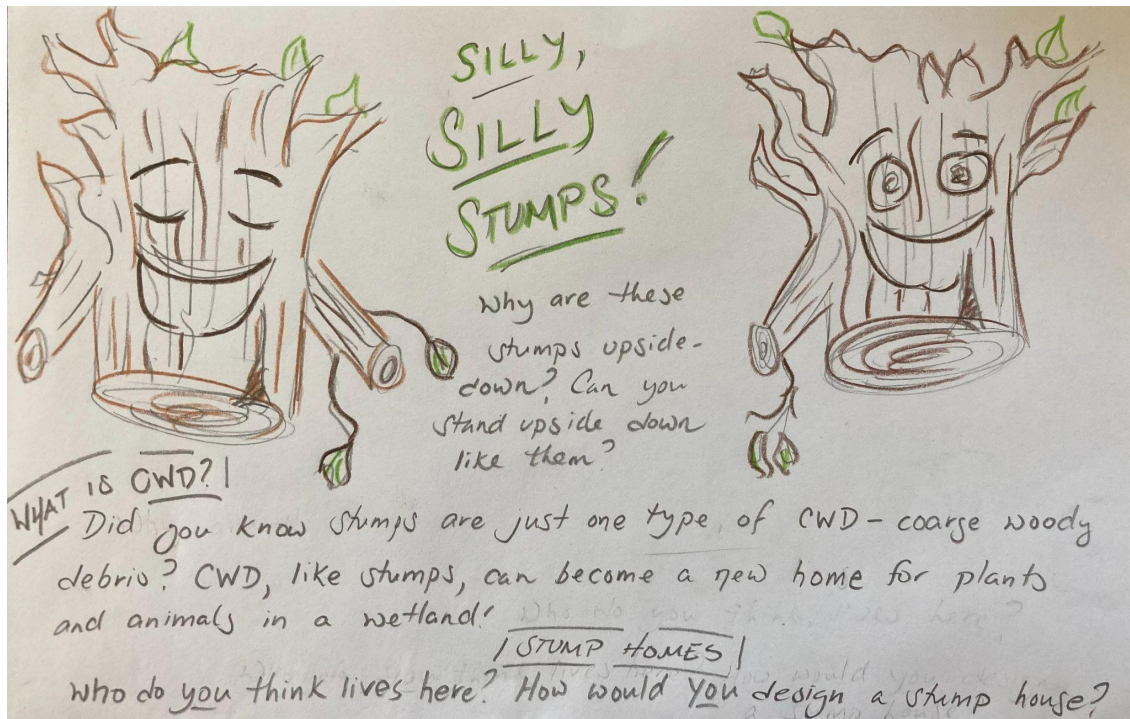 SILLY,
SILLY
STUMPS!
Why are these
stumps upside-
down? Can you
stand upside down
like them?
WHAT IS CWD?
Did you know stumps are just one type of CWD - coarse woody
debris? CWD, like stumps, can become a new home for plants
and animals in a wetland!
STUMP HOMES
Who do you think lives here? How would you design a stump house?